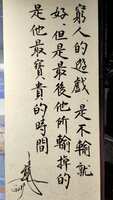 窮人的遊戲是不輸就
好但是最後他所輸掉的
是他最寶貴的時間